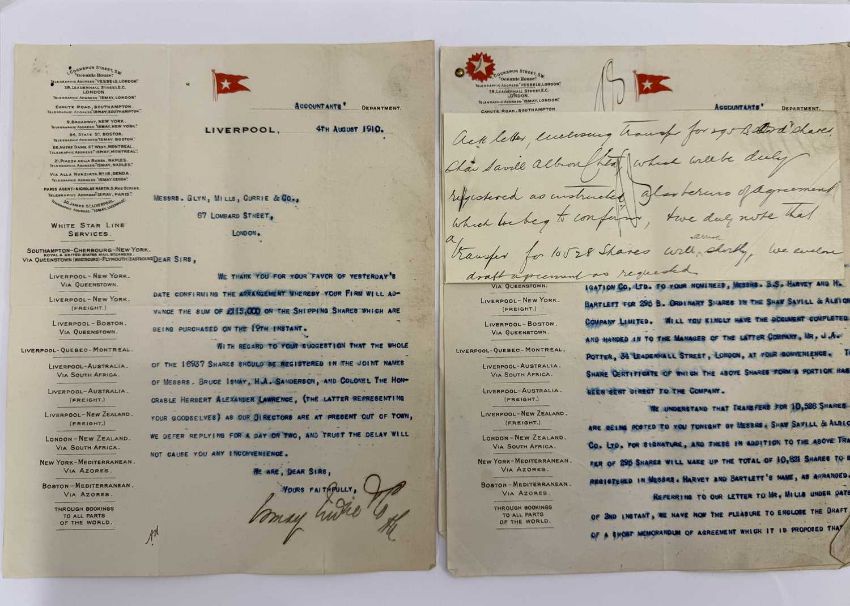 1, COCKSPUR STREET, S.W.
"OCEANIC HOUSE"
TELEGRAPHIC ADDRESS "VESSELS, LONDON"
38, LEADENHALL STREET, E.C.
LONDON
TELEGRAPHIC ADDRESS "ISMAY, LONDON"
CANUTE ROAD, SOUTHAMPTON
TELEGRAPHIC ADDRESS "ISMAY, SOUTHAMPTON"
9, BROADWAY, NEW YORK
TELEGRAPHIC ADDRESS "ISMAY, NEW YORK"
84, STATE ST, BOSTON.
TELEGRAPHIC ADDRESS "ISMAY, BOSTON"
TELEGRAPHIC ADDRESS "ISMAY, MONTREAL"
21, PIAZZA DELLA BORSA, NAPLES.
TELEGRAPHIC ADDRESS "ISMAY, NAPLES"
VIA ALLA NUNZIATA Nº 18, GENOA
TELEGRAPHIC ADDRESS "ISMAY, GENOA"
PARIS AGENT: NICHOLAS MARTIN, 9, RUE SCRIBE.
TELEGRAPHIC ADDRESS "ISMAY, PARIS"
30, JAMES ST, LIVERPOOL
TELEGRAPHIC ADDRESS "ISMAY, LIVERPOOL"
WHITE STAR LINE
SERVICES.
SOUTHAMPTON-CHERBOURG-NEW YORK.
ROYAL & UNITED STATES MAIL STEAMERS
VIA QUEENSTOWN (WESTBOUND)-PLYMOUTH (EASTBOUND)
LIVERPOOL-NEW YORK.
VIA QUEENSTOWN.
LIVERPOOL-NEW YORK.
(FREIGHT.)
LIVERPOOL-BOSTON.
VIA QUEENSTOWN.
LIVERPOOL-QUEBEC-MONTREAL.
LIVERPOOL-AUSTRALIA.
VIA SOUTH AFRICA.
LIVERPOOL-AUSTRALIA.
(FREIGHT.)
LIVERPOOL-NEW ZEALAND.
(FREIGHT.)
LONDON-NEW ZEALAND.
VIA SOUTH AFRICA.
NEW YORK-MEDITERRANEAN.
VIA AZORES.
BOSTON-MEDITERRANEAN.
VIA AZORES.
THROUGH BOOKINGS
TO ALL PARTS
OF THE WORLD.
ACCOUNTANTS' DEPARTMENT.
LIVERPOOL, 4TH AUGUST 1910.
MESSRS. GLYN, MILLS, CURRIE & CO.,
67 LOMBARD STREET,
LONDON.
DEAR SIRS,
WE THANK YOU FOR YOUR FAVOR OF YESTERDAY'S
DATE CONFIRMING THE ARRANGEMENT WHEREBY YOUR FIRM WILL AD-
VANCE THE SUM OF £115,000 ON THE SHIPPING SHARES WHICH ARE
BEING PURCHASED ON THE 19TH INSTANT.
WITH REGARD TO YOUR SUGGESTION THAT THE WHOLE
OF THE 16937 SHARES SHOULD BE REGISTERED IN THE JOINT NAMES
OF MESSRS. BRUCE ISMAY, H.A. SANDERSON, AND COLONEL THE HON-
ORABLE HERBERT ALEXANDER LAWRENCE, (THE LATTER REPRESENTING
YOUR GOODSELVES) AS OUR DIRECTORS ARE AT PRESENT OUT OF TOWN,
WE DEFER REPLYING FOR A DAY OR TWO, AND TRUST THE DELAY WILL
NOT CAUSE YOU ANY INCONVENIENCE.
WE ARE, DEAR SIRS,
YOURS FAITHFULLY,
Ismay Imrie & Co
1, COCKSPUR STREET, S.W.
"OCEANIC HOUSE"
TELEGRAPHIC ADDRESS "VESSELS, LONDON"
38, LEADENHALL STREET, E.C.
LONDON
TELEGRAPHIC ADDRESS "ISMAY, LONDON"
CANUTE ROAD, SOUTHAMPTON
ACCOUNTANTS' DEPARTMENT.
Ack letter, enclosing transf for 295 B Ord shares
Shaw Savill Albion which will be duly
registered as instructed also terms of agreement
which we beg to confirm, & we duly note that
a
transfer for 10528 shares will shortly, we enclose
draft agreement as requested
VIA QUEENSTOWN.
LIVERPOOL-NEW YORK.
(FREIGHT.)
LIVERPOOL-BOSTON.
VIA QUEENSTOWN.
LIVERPOOL-QUEBEC-MONTREAL.
LIVERPOOL-AUSTRALIA.
VIA SOUTH AFRICA.
LIVERPOOL-AUSTRALIA.
(FREIGHT.)
LIVERPOOL-NEW ZEALAND.
(FREIGHT.)
LONDON-NEW ZEALAND.
VIA SOUTH AFRICA.
NEW YORK-MEDITERRANEAN.
VIA AZORES.
BOSTON-MEDITERRANEAN.
VIA AZORES.
THROUGH BOOKINGS
TO ALL PARTS
OF THE WORLD.
IGATION CO. LTD. TO YOUR NOMINEES, MESSRS. S.S. HARVEY AND H.
BARTLETT FOR 295 B. ORDINARY SHARES IN THE SHAW SAVILL & ALBIO
COMPANY LIMITED. WILL YOU KINGLY HAVE THE DOCUMENT COMPLETED
AND HANDED IN TO THE MANAGER OF THE LATTER COMPANY, MR. J.A.
POTTER, 34 LEADENHALL STREET, LONDON, AT YOUR CONVENIENCE. T
SHARE CERTIFICATE OF WHICH THE ABOVE SHARES FORM A PORTION HAS
BEEN SENT DIRECT TO THE COMPANY.
WE UNDERSTAND THAT TRANSFERS FOR 10,526 SHARES
ARE BEING POSTED TO YOU TONIGHT BY MESSRS. SHAW SAVILL & ALBIO
CO. LTD. FOR SIGNATURE, AND THESE IN ADDITION TO THE ABOVE TRA
FER OF 295 SHARES WILL MAKE UP THE TOTAL OF 10,821 SHARES TO B
REGISTERED IN MESSRS. HARVEY AND BARTLETT'S NAME, AS ARRANGED.
REFERRING TO OUR LETTER TO MR. MILLS UNDER DATE
OF 2ND INSTANT, WE HAVE NOW THE PLEASURE TO ENCLOSE THE DRAFT
OF A SHORT MEMORANDUM OF AGREEMENT WHICH IT IS PROPOSED THAT